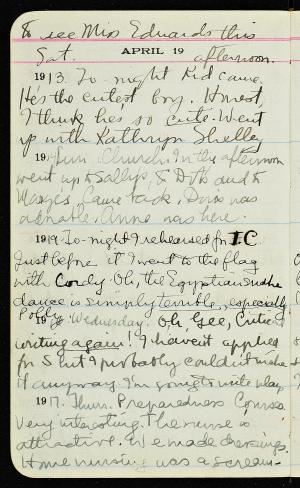 to see Miss Edwards this
Sat. APRIL 19 afternoon.
1913. To-night Kid came.
He's the cutest boy. Honest,
I think he's so cute. Went
up with Kathryn Shelley
19 Sun. Church. In the afternoon
went up to Sally's, & and to
Marge's. Came back, Doris was
adorable. Anne was here.
1919. To-night I rehearsed for I.C.
Just before it I went to the flag
with Cordy. Oh, the Egyptian
dance is simply terrible, especially
Polly.
19 Wednesday. Oh, Gee,
writing again! I haven't applied
for S but I probably couldn't make
it anyway. I'm going to write play
1917. Thurs. Preparedness Course.
Very interesting. The nurse is
attractive. We made dressings.
Home nursing was a scream-